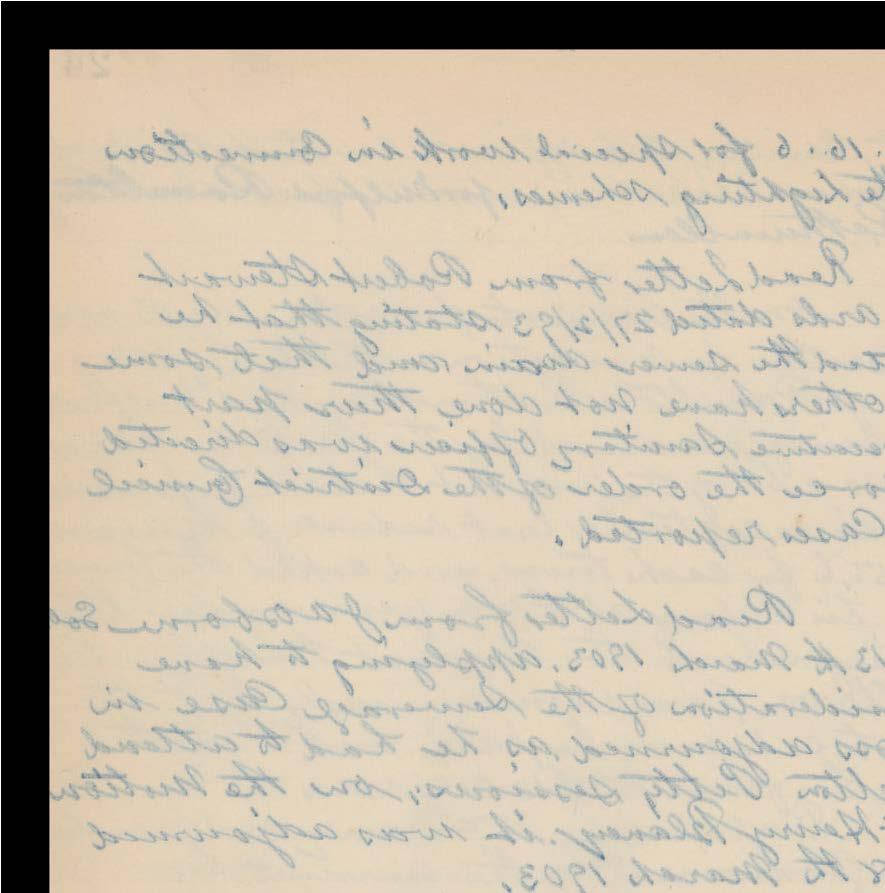 . 16 . 6 for special work in Connection
the Lighting Schemes.
Read letter from Robert Stewart
ards dated 27/2/03 stating that he
ted the sewer drain and that some
others have not done their part
ecutive Sanitary Officer was directed
orce the order of the District Council
Cases reported.
Read letter from J A Osborne Sol
13th March 1903. applying to have
sideration of the Sewerage Case in
oss adjourned as he had to attend
Petty Sessions; on the motion
Henry Blaney it was adjourned
8th March 1903.